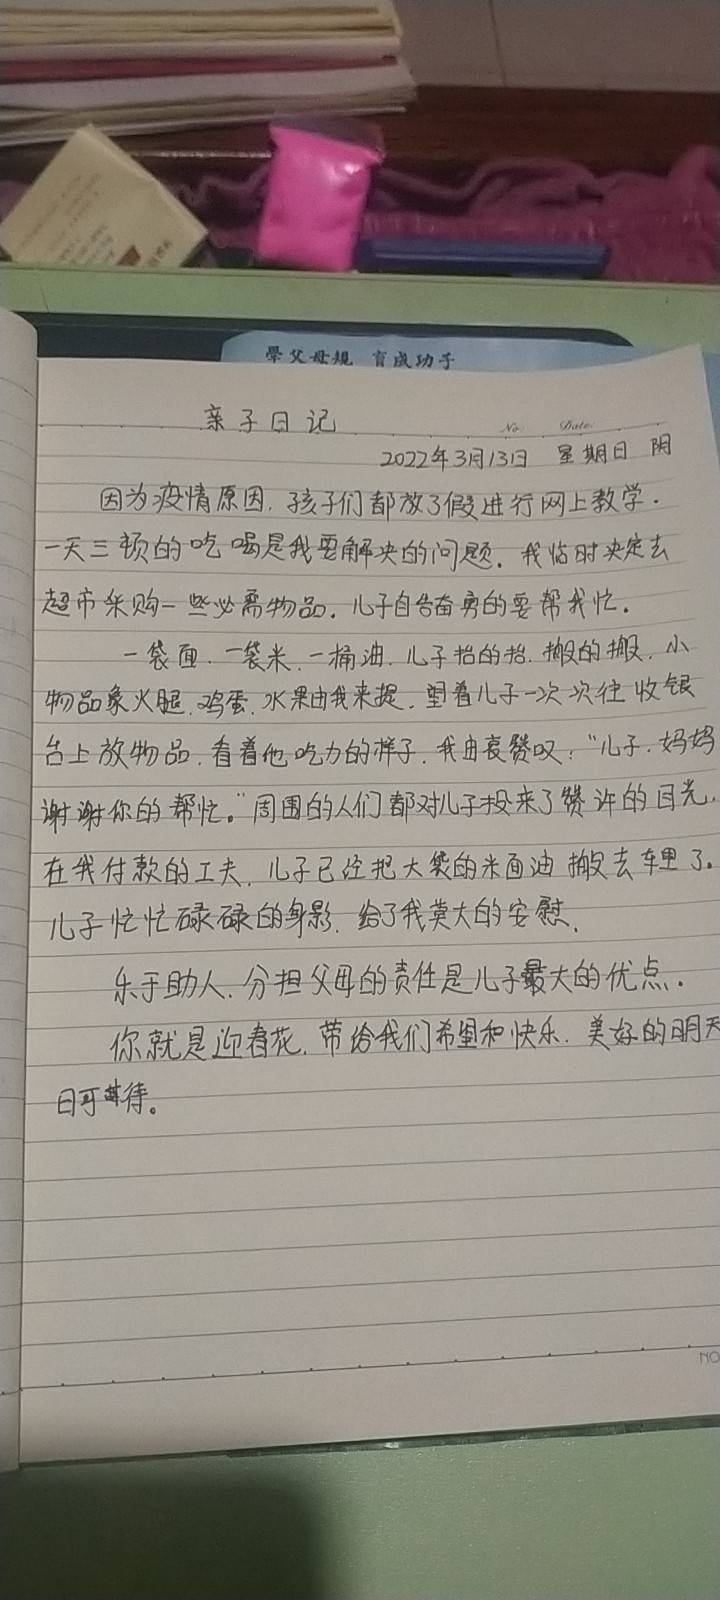 學父母規 育成功子
亲子日记
No. Date.
2022年3月13日 星期日 阴
因为疫情原因,孩子们都放了假进行网上教学.
一天三顿的吃喝是我要解决的问题.我临时决定去
超市采购一些必需物品.儿子自告奋勇的要帮我忙.
一袋面.一袋米.一桶油.儿子抬的抬.搬的搬.小
物品象火腿.鸡蛋.水果由我来提.望着儿子一次次往收银
台上放物品.看着他吃力的样子.我由衷赞叹:"儿子.妈妈
谢谢你的帮忙。"周围的人们都对儿子投来了赞许的目光.
在我付款的工夫.儿子已经把大袋的米面油搬去车里了。
儿子忙忙碌碌的身影.给了我莫大的安慰.
乐于助人.分担父母的责任是儿子最大的优点.
你就是迎春花.带给我们希望和快乐.美好的明天
日可待。
NO